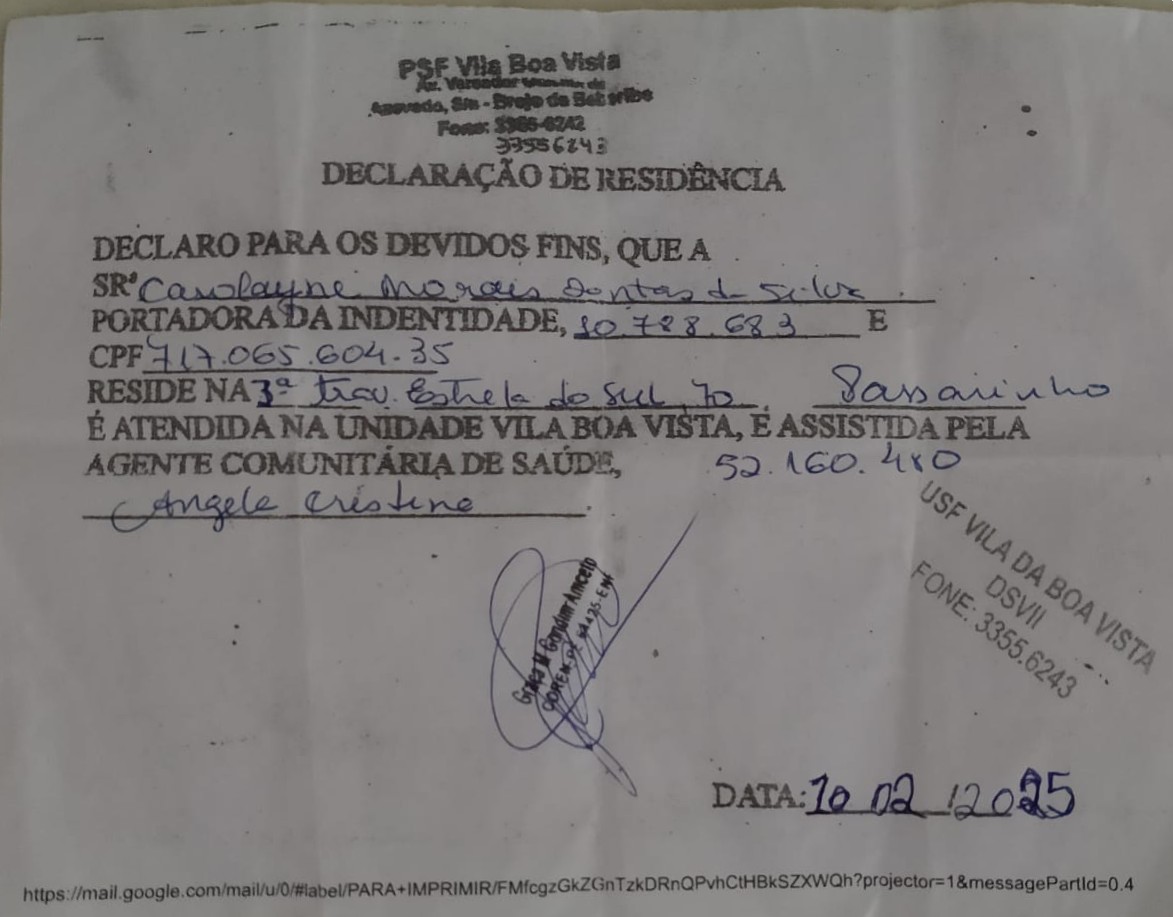 PSF Vila Boa Vista
Av. Vereador
Azevedo, S/n - Brejo da Beberibe
Fone: 3355-6242
33556243
DECLARAÇÃO DE RESIDÊNCIA
DECLARO PARA OS DEVIDOS FINS, QUE A
SRª Carolayne Morais Dantas da Silva
PORTADORA DA INDENTIDADE, 10.788.683 E
CPF 717.065.604-35
RESIDE NA 3ª trav. Estrela do Sul 70 Passarinho
É ATENDIDA NA UNIDADE VILA BOA VISTA, É ASSISTIDA PELA
AGENTE COMUNITÁRIA DE SAÚDE, 52.160.480
Angela Cristina
USF VILA DA BOA VISTA
DSVII
FONE: 3355.6243
DATA: 10 02 /2025
https://mail.google.com/mail/u/0/#label/PARA+IMPRIMIR/FMfcgzGkZGnTzkDRnQPvhCtHBkSZXWQh?projector=1&messagePartId=0.4